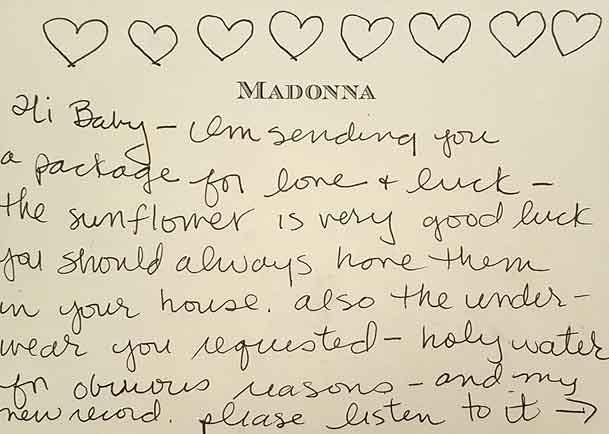 MADONNA
Hi Baby – Im sending you
a package for love + luck –
the sunflower is very good luck
you should always have them
in your house. also the under-
wear you requested – holy water
for obvious reasons – and my
new record. please listen to it →